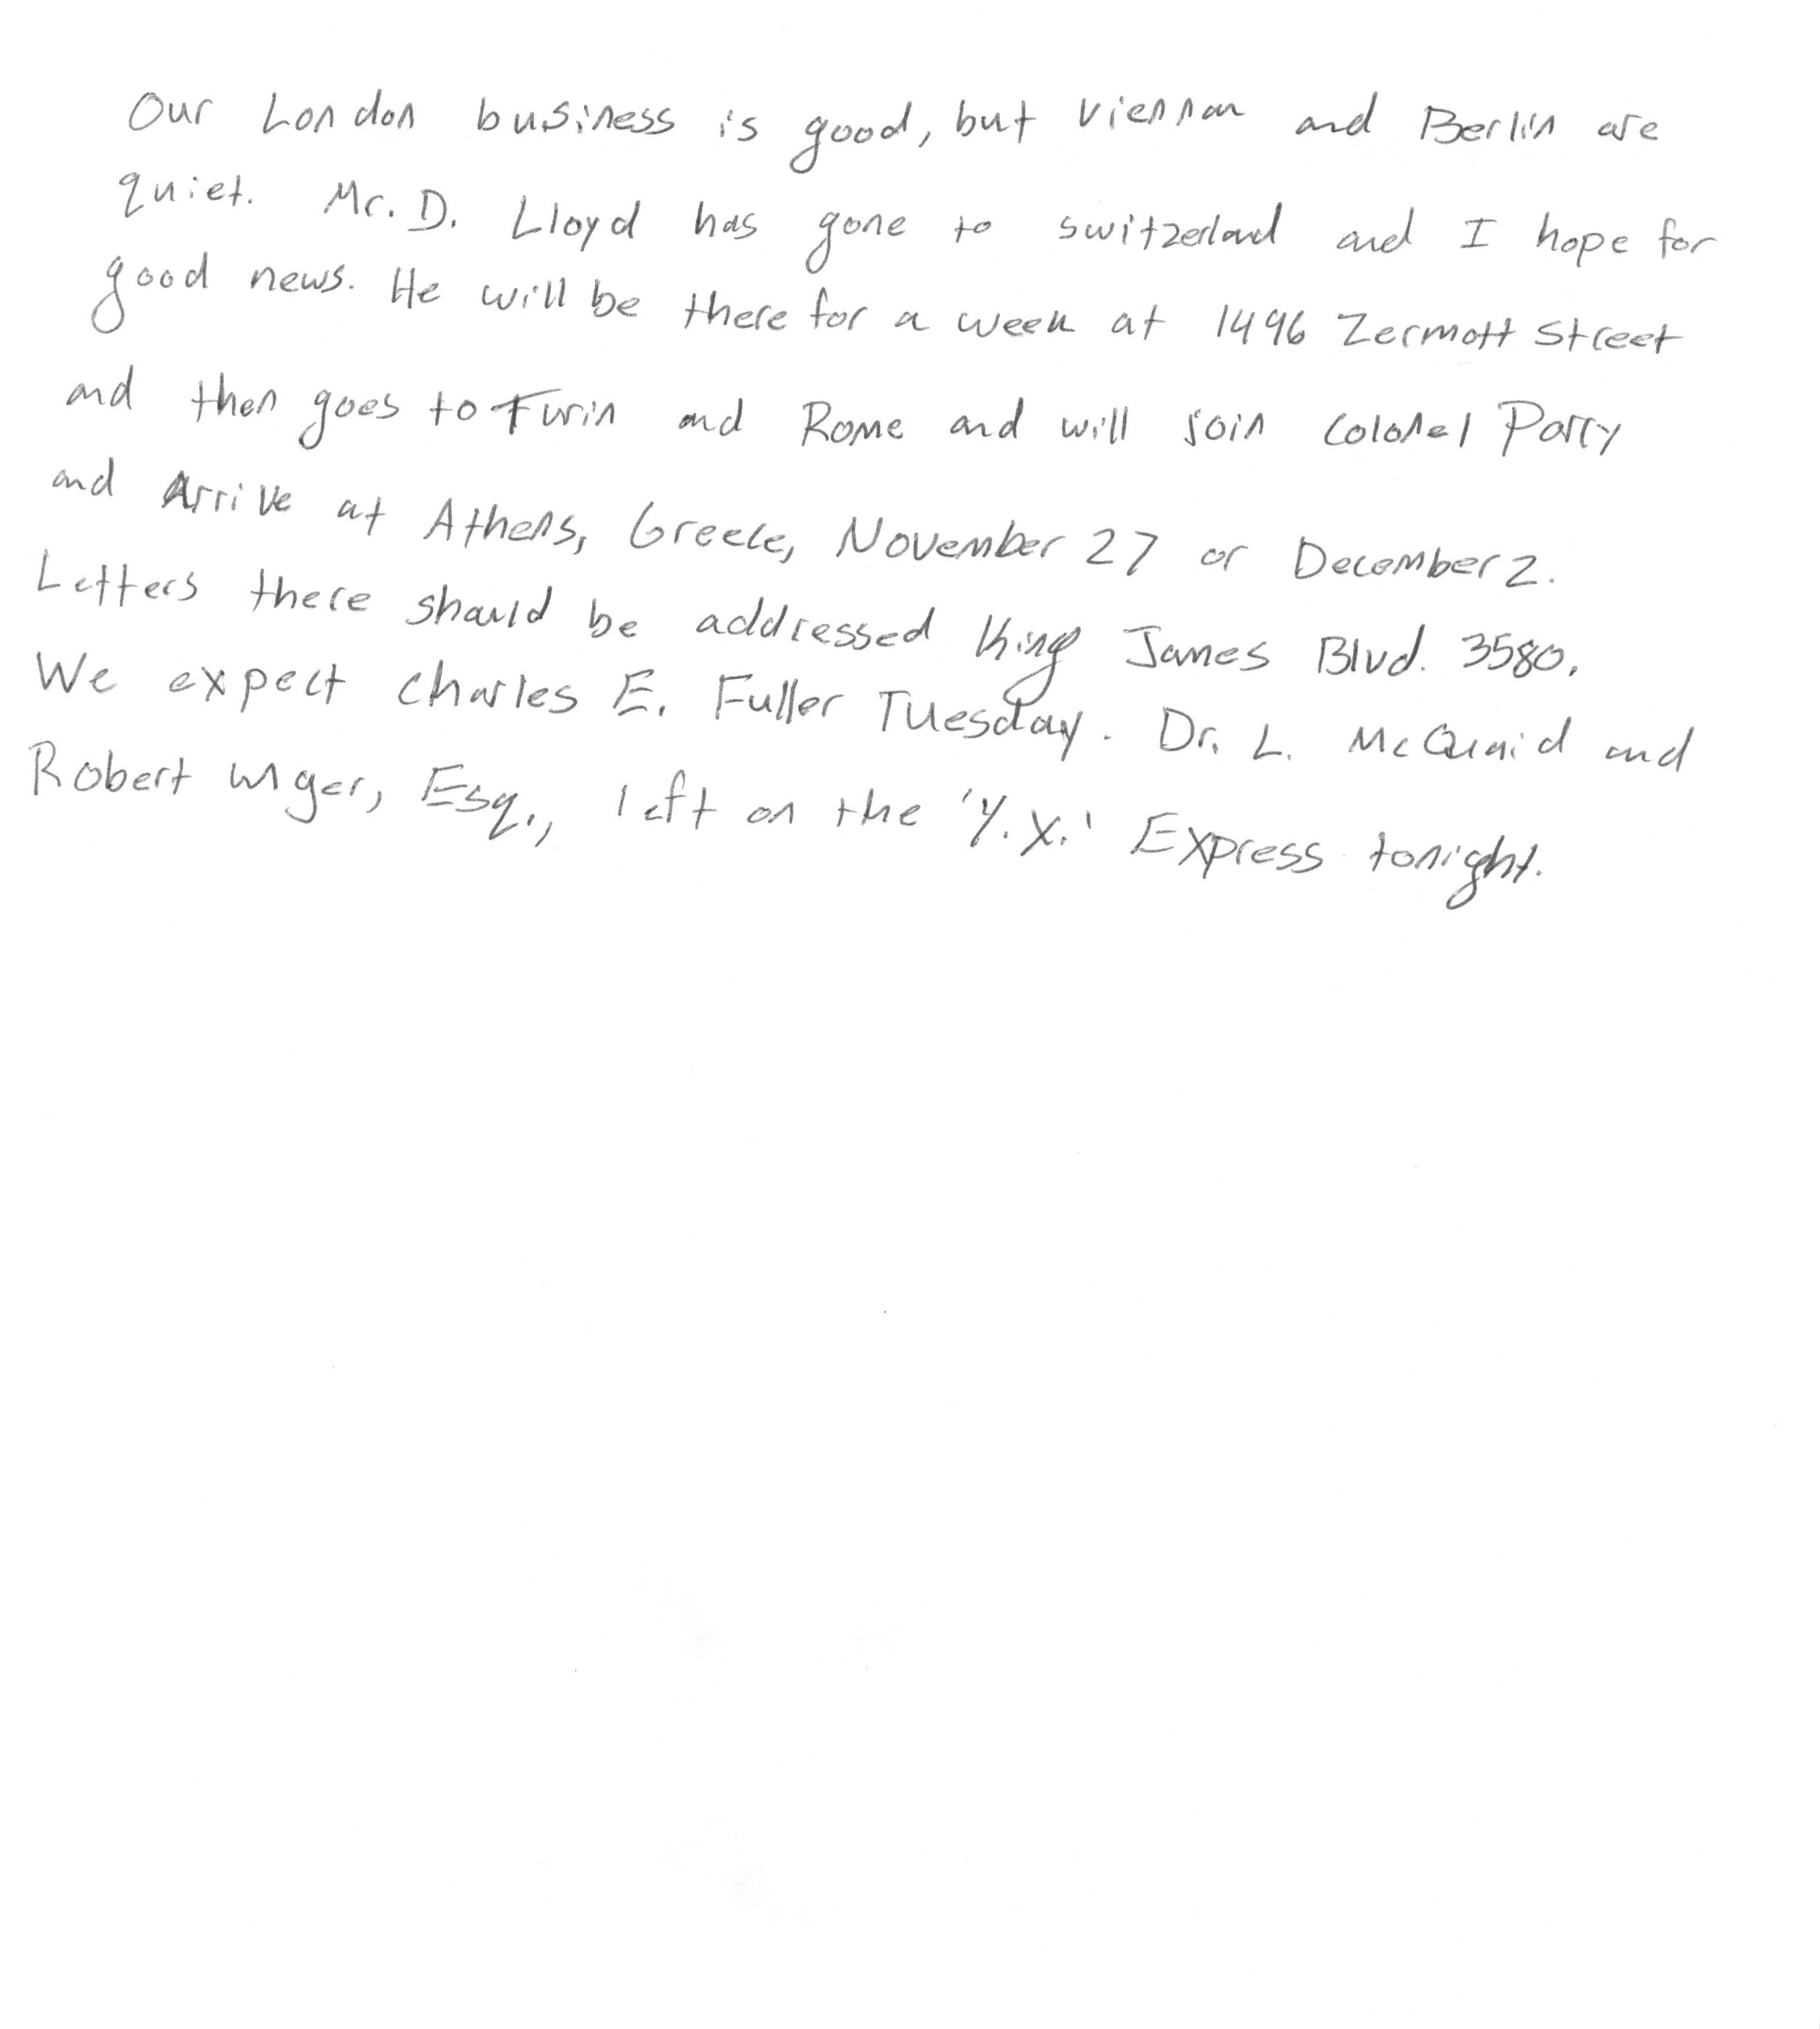 Our London business is good, but viennan and Berlin are
quiet. Mr. D. Lloyd has gone to switzerland and I hope for
good news. He will be there for a week at 1496 Zermott Street
and then goes to Turin and Rome and will join Colonel Parry
and Arrive at Athens, Greece, November 27 or December 2.
Letters there should be addressed King James Blvd. 3580.
We expect Charles E. Fuller Tuesday. Dr. L. McQuaid and
Robert Unger, Esq., left on the 'Y.X.' Express tonight.